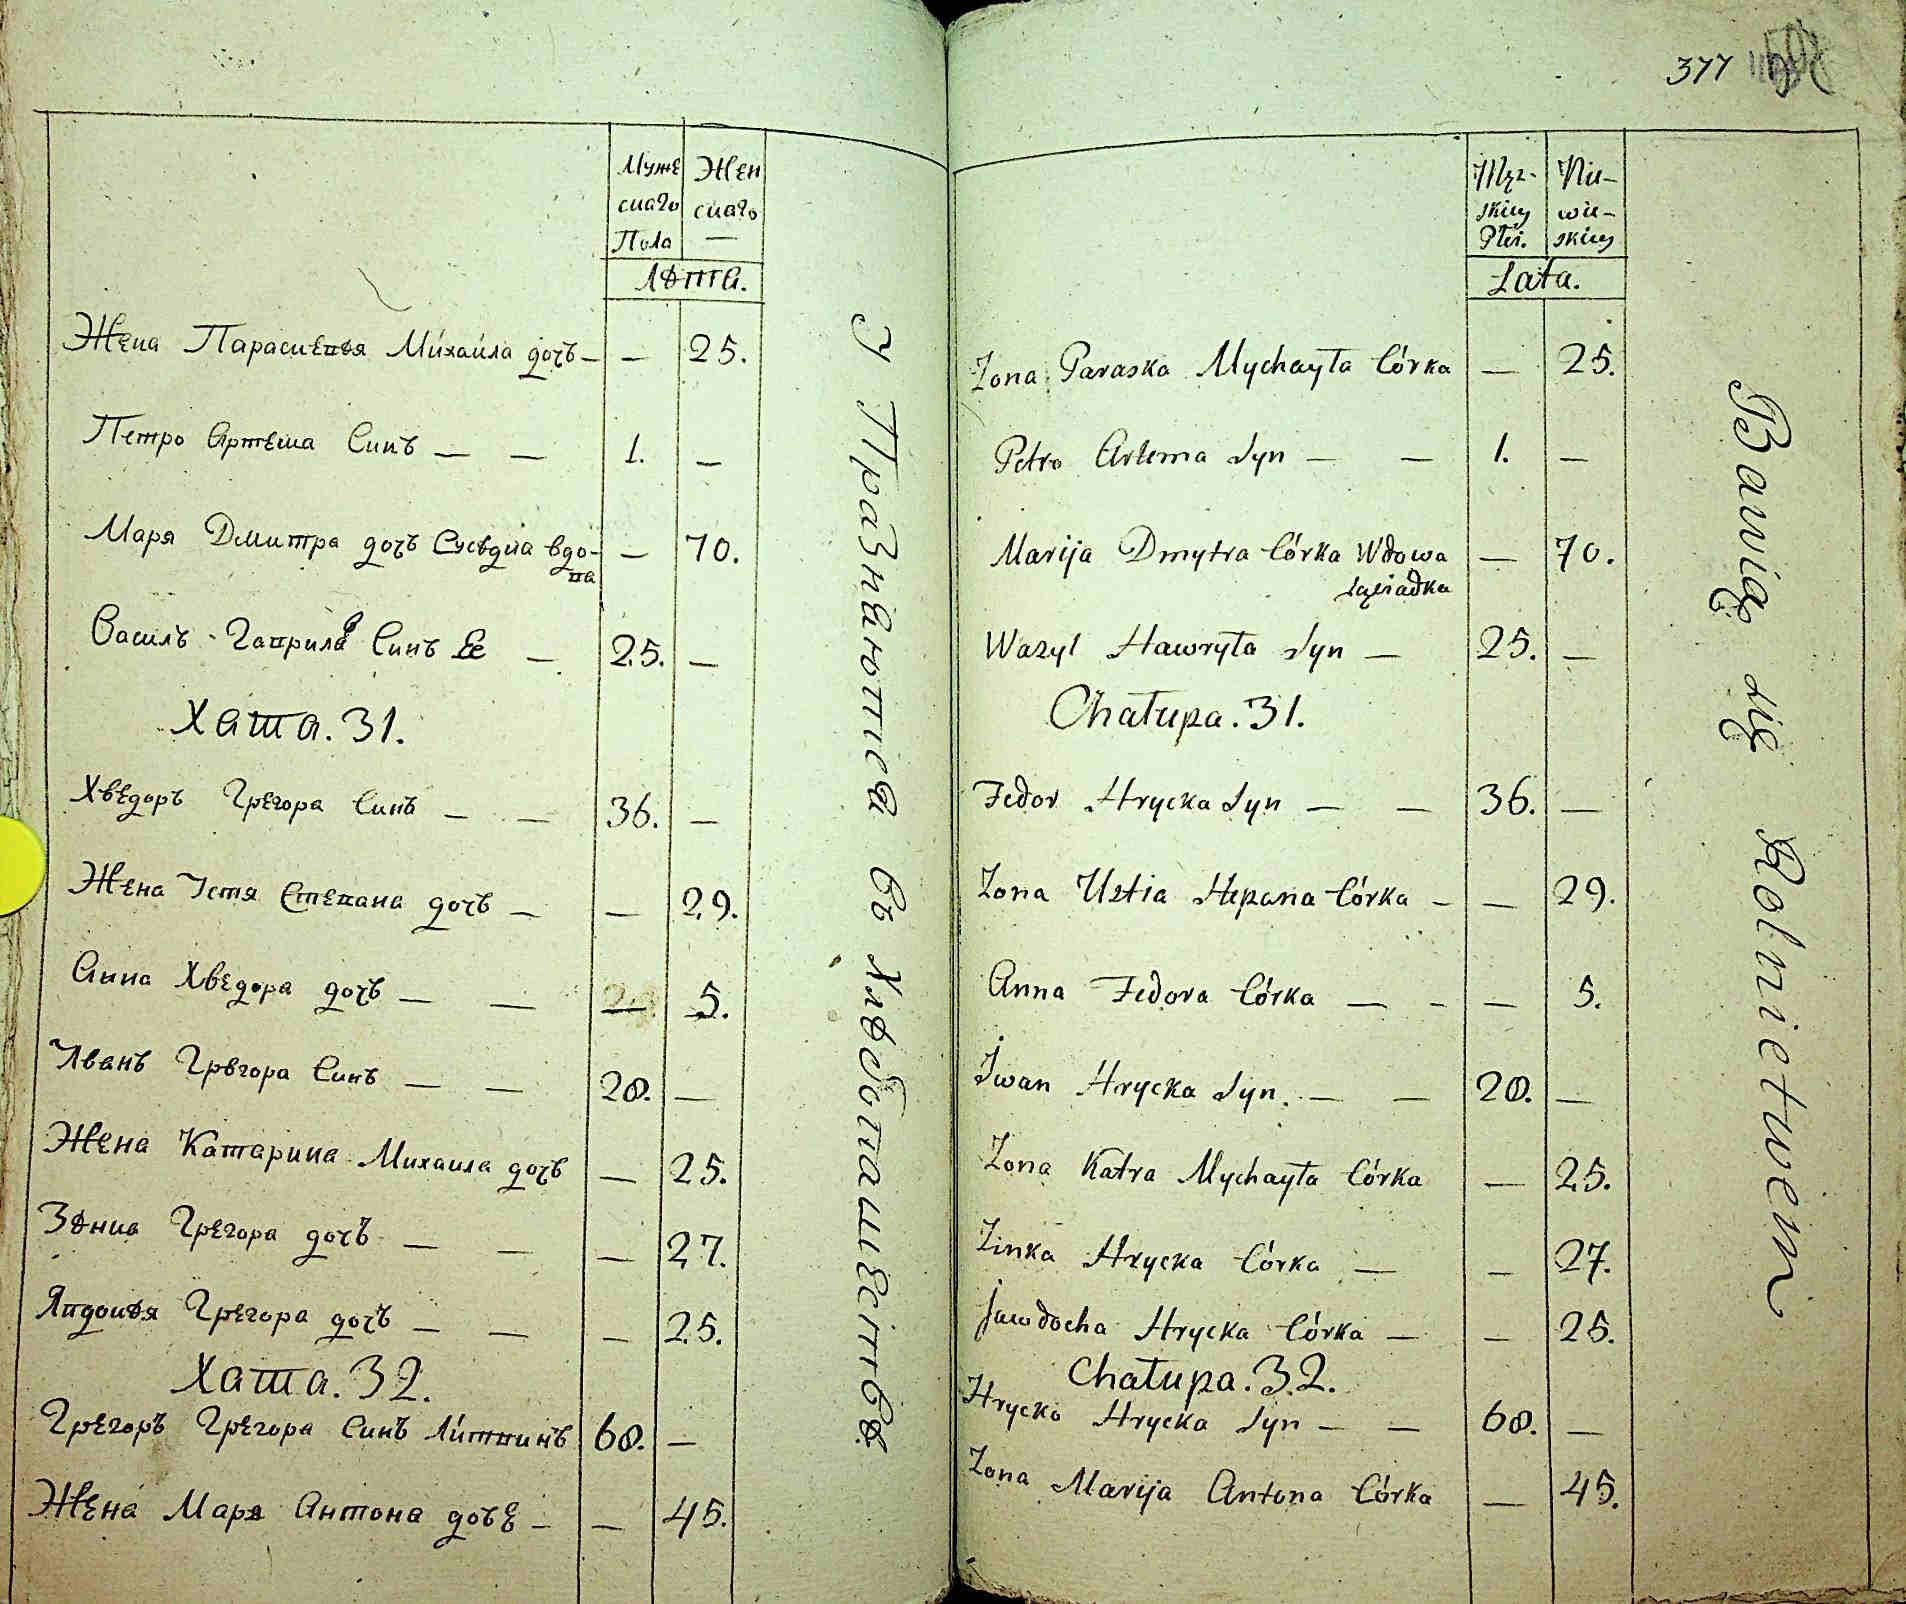 377
Муже Жен
скаго скаго
Пола —
Лѣта.
Жена Параскевія Михайла дочъ — — 25.
Петро Артема Синъ — — 1. —
Маря Дмитра дочъ Сусѣдка вдо- — 70.
ва
Василь Гаврила Синъ Ее — 25. —
Хата. 31.
Хведоръ Грегора Синъ — — 36. —
Жена Устя Степана дочъ — — 29.
Анна Хведора дочъ — — — 5.
Иванъ Грегора Синъ — — 28. —
Жена Катарина Михаила дочъ — 25.
Зѣнка Грегора дочъ — — — 27.
Явдокія Грегора дочъ — — — 25.
Хата. 32.
Грегоръ Грегора Синъ Литвинъ 60. —
Жена Маря Антона дочъ — — 45.
Упражняются въ хлѣбопашествѣ
Męz- Nie-
skiey wie-
Płci. skiey
Lata.
Zona Paraska Mychayła Córka — 25.
Petro Artema Syn — — 1. —
Marija Dmytra Córka Wdowa — 70.
sąsiadka
Wazyl Hawryła Syn — 25. —
Chałupa. 31.
Fedor Hrycka Syn — — 36. —
Zona Ustia Stepana Córka — — 29.
Anna Fedora Córka — - — 5.
Iwan Hrycka Syn. — — 28. —
Zona Katra Mychayła Córka — 25.
Zinka Hrycka Córka — — 27.
Jawdocha Hrycka Córka — — 25.
Chałupa. 32.
Hrycko Hrycka Syn — — 60. —
Zona Marija Antona Córka — 45.
Bawią się Rolnictwem